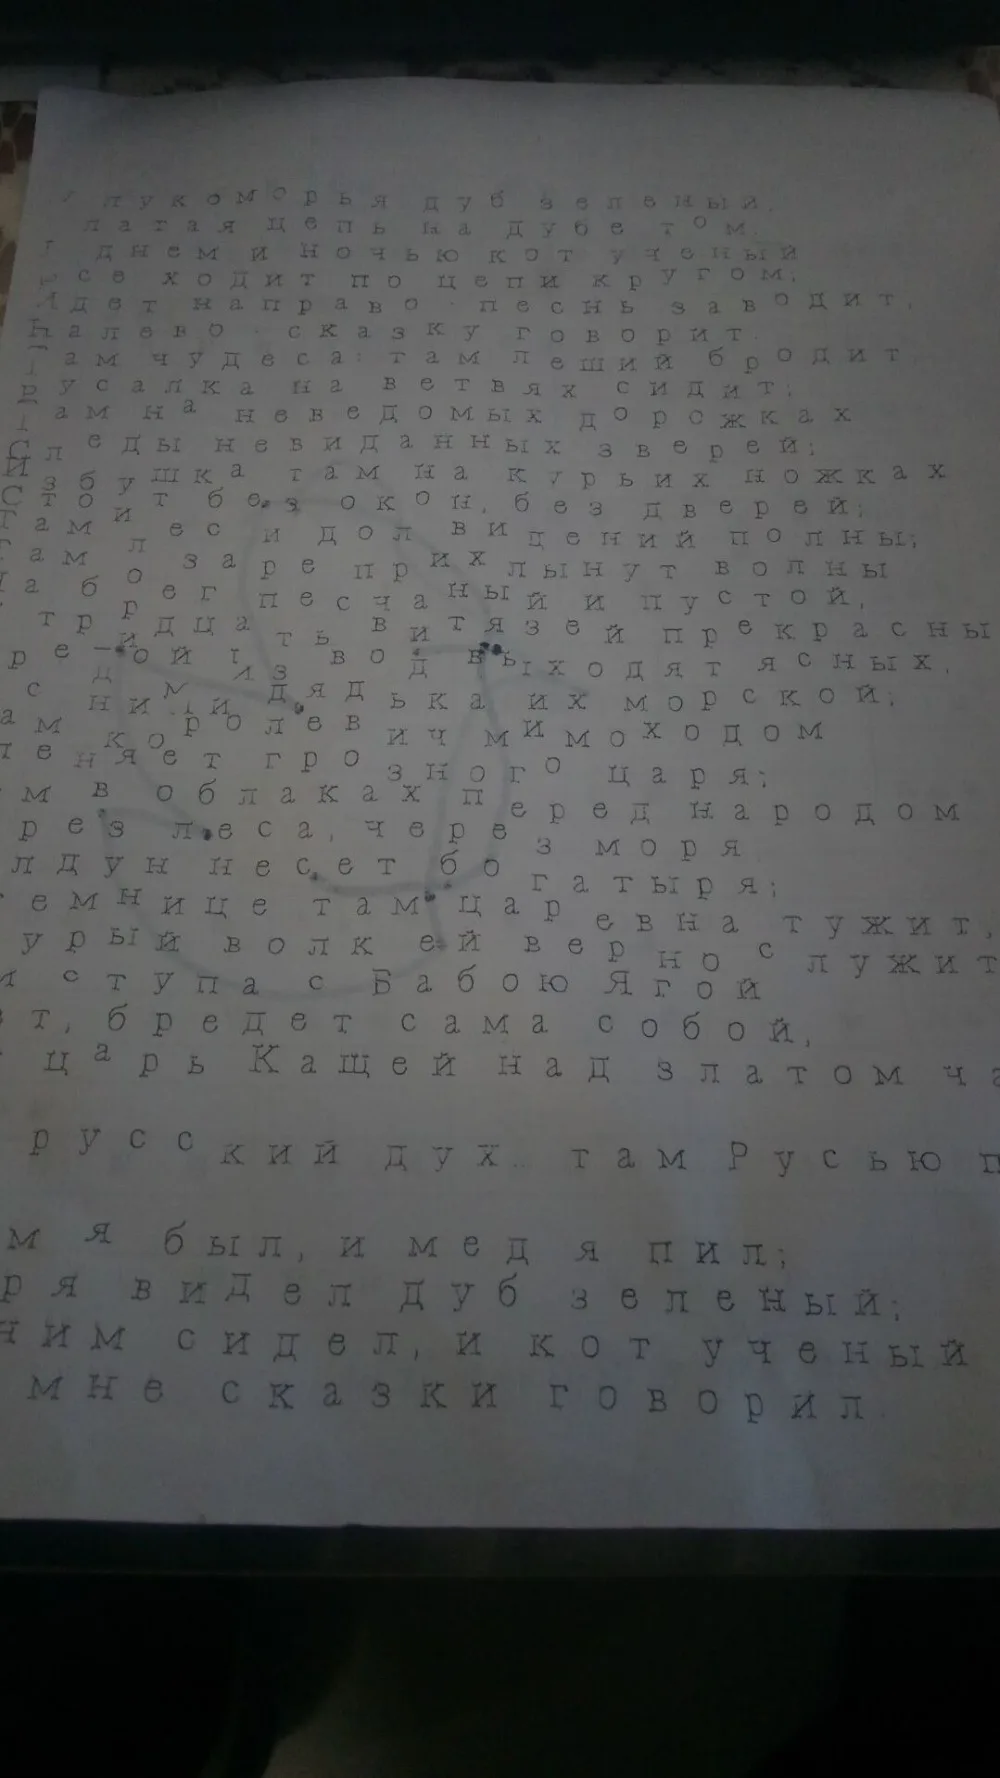 лукоморья дуб зеленый.
латая цепь на дубе том.
днем и ночью кот ученый
се ходит по цепи кругом;
Идет направо - песнь заводит,
Налево - сказку говорит.
Там чудеса: там леший бродит
Русалка на ветвях сидит;
Там на неведомых дорожках
Следы невиданных зверей;
Избушка там на курьих ножках
Стоит без окон, без дверей;
Там лес и дол видений полны;
Там о заре прихлынут волны
На брег песчаный и пустой,
тридцать витязей прекрасны
редой из вод выходят ясных,
с ними дядька их морской;
ам королевич мимоходом
леняет грозного царя;
м в облаках перед народом
рез леса, через моря
лдун несет богатыря;
темнице там царевна тужит,
урый волк ей верно служит
м ступа с Бабою Ягой
т, бредет сама собой,
царь Кащей над златом ча
русский дух... там Русью п
м я был, и мед я пил;
ря видел дуб зеленый;
ним сидел, и кот ученый
мне сказки говорил.